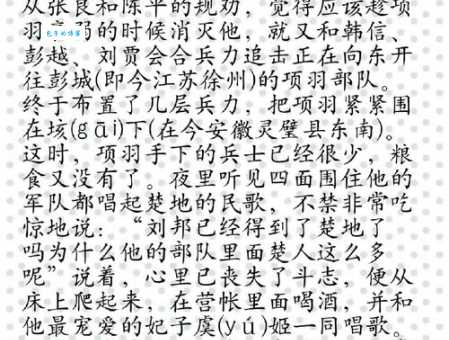 从张良和陈平的规劝，觉得应该趁项
羽衰弱的时候消灭他，就又和韩信、
彭越、刘贾会合兵力追击正在向东开
往彭城(即今江苏徐州)的项羽部队。
终于布置了几层兵力，把项羽紧紧围
在垓(gāi)下(在今安徽灵璧县东南)。
这时，项羽手下的兵士已经很少，粮
食又没有了。夜里听见四面围住他的
军队都唱起楚地的民歌，不禁非常吃
惊地说：“刘邦已经得到了楚地了
吗为什么他的部队里面楚人这么多
呢”说着，心里已丧失了斗志，便从
床上爬起来，在营帐里面喝酒，并和
他最宠爱的妃子虞(yú)姬一同唱歌。